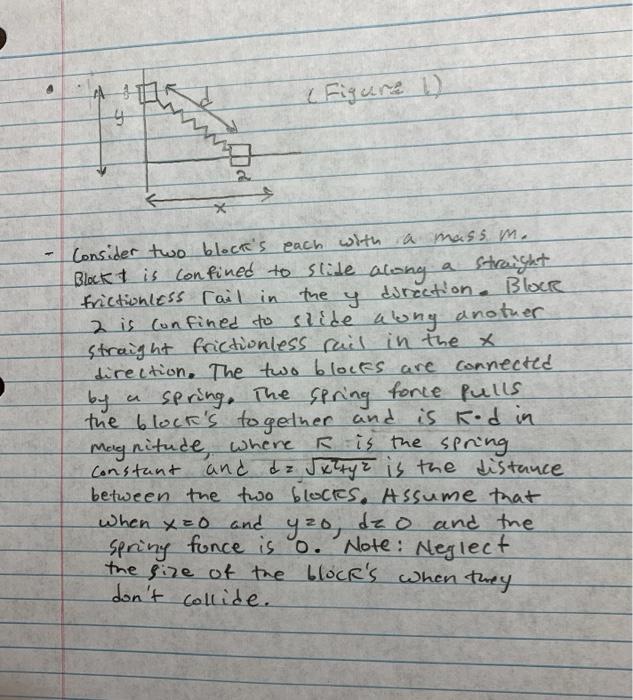 (Figure 1)
1
d
y
2
x
- Consider two block's each with a mass m.
Block 1 is confined to slide along a straight
frictionless rail in the y direction. Block
2 is confined to slide along another
straight frictionless rail in the x
direction. The two blocks are connected
by a spring. The spring force pulls
the block's together and is K·d in
magnitude, where K is the spring
constant and d = √x²+y² is the distance
between the two blocks. Assume that
when x=0 and y=0, d=0 and the
spring force is 0. Note: Neglect
the size of the block's when they
don't collide.